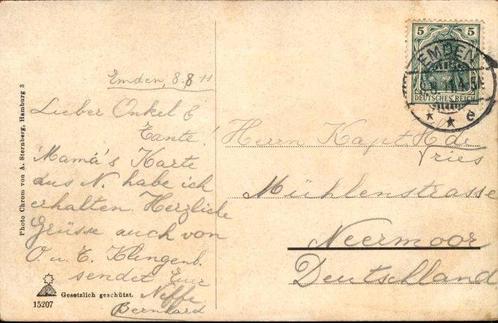 Emden, 8.8 11
Lieber Onkel &
Tante!
Mamá's Karte
aus N. habe ich
erhalten. Herzliche
Grüsse auch von
O. u. T. Klingenb.
sendet Euer
Neffe
Bernhard
Herrn Kapt. H. de
Vries
Mühlenstrasse
Neermoor
Deutschland
5 5
EMDEN
DEUTSCHES REICH
* * e
Photo Chrom von A. Sternberg, Hamburg 3
Gesetzlich geschützt.
15207